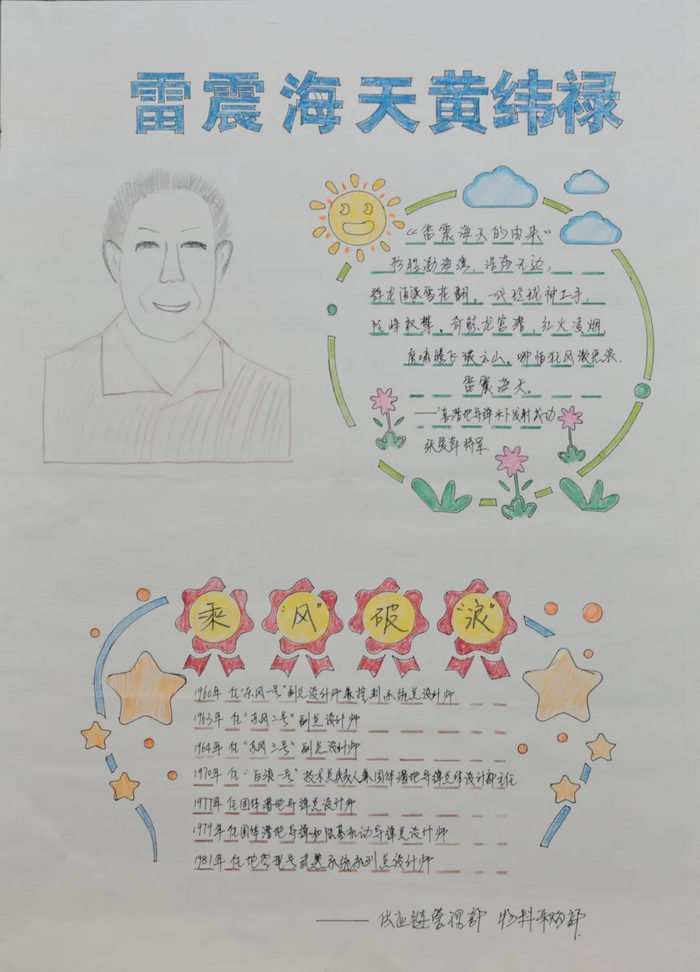 雷震海天黄纬禄
“雷震海天的由来”
形胜渤海湾，浩荡无边，
群龙追逐雪花翻。一代玲珑神工手，
险峰敢攀。奇鲸龙宫潜，红火凌烟，
虎啸腾飞破云山。哪怕狂风激恶浪，
雷震海天。
——潜地导弹水下发射成功
张爱萍将军
乘“风”破“浪”
1960年 任“东风一号”副总设计师兼控制系统总设计师
1963年 任“东风二号”副总设计师
1964年 任“东风三号”副总设计师
1970年 任“巨浪一号”技术总负责人兼固体潜地导弹总体设计部主任
1979年任固体潜地导弹总设计师
1979年任固体潜地导弹和陆基机动导弹总设计师
1981年 任地空型号武器系统系列总设计师
——供应链管理部 物料采购部